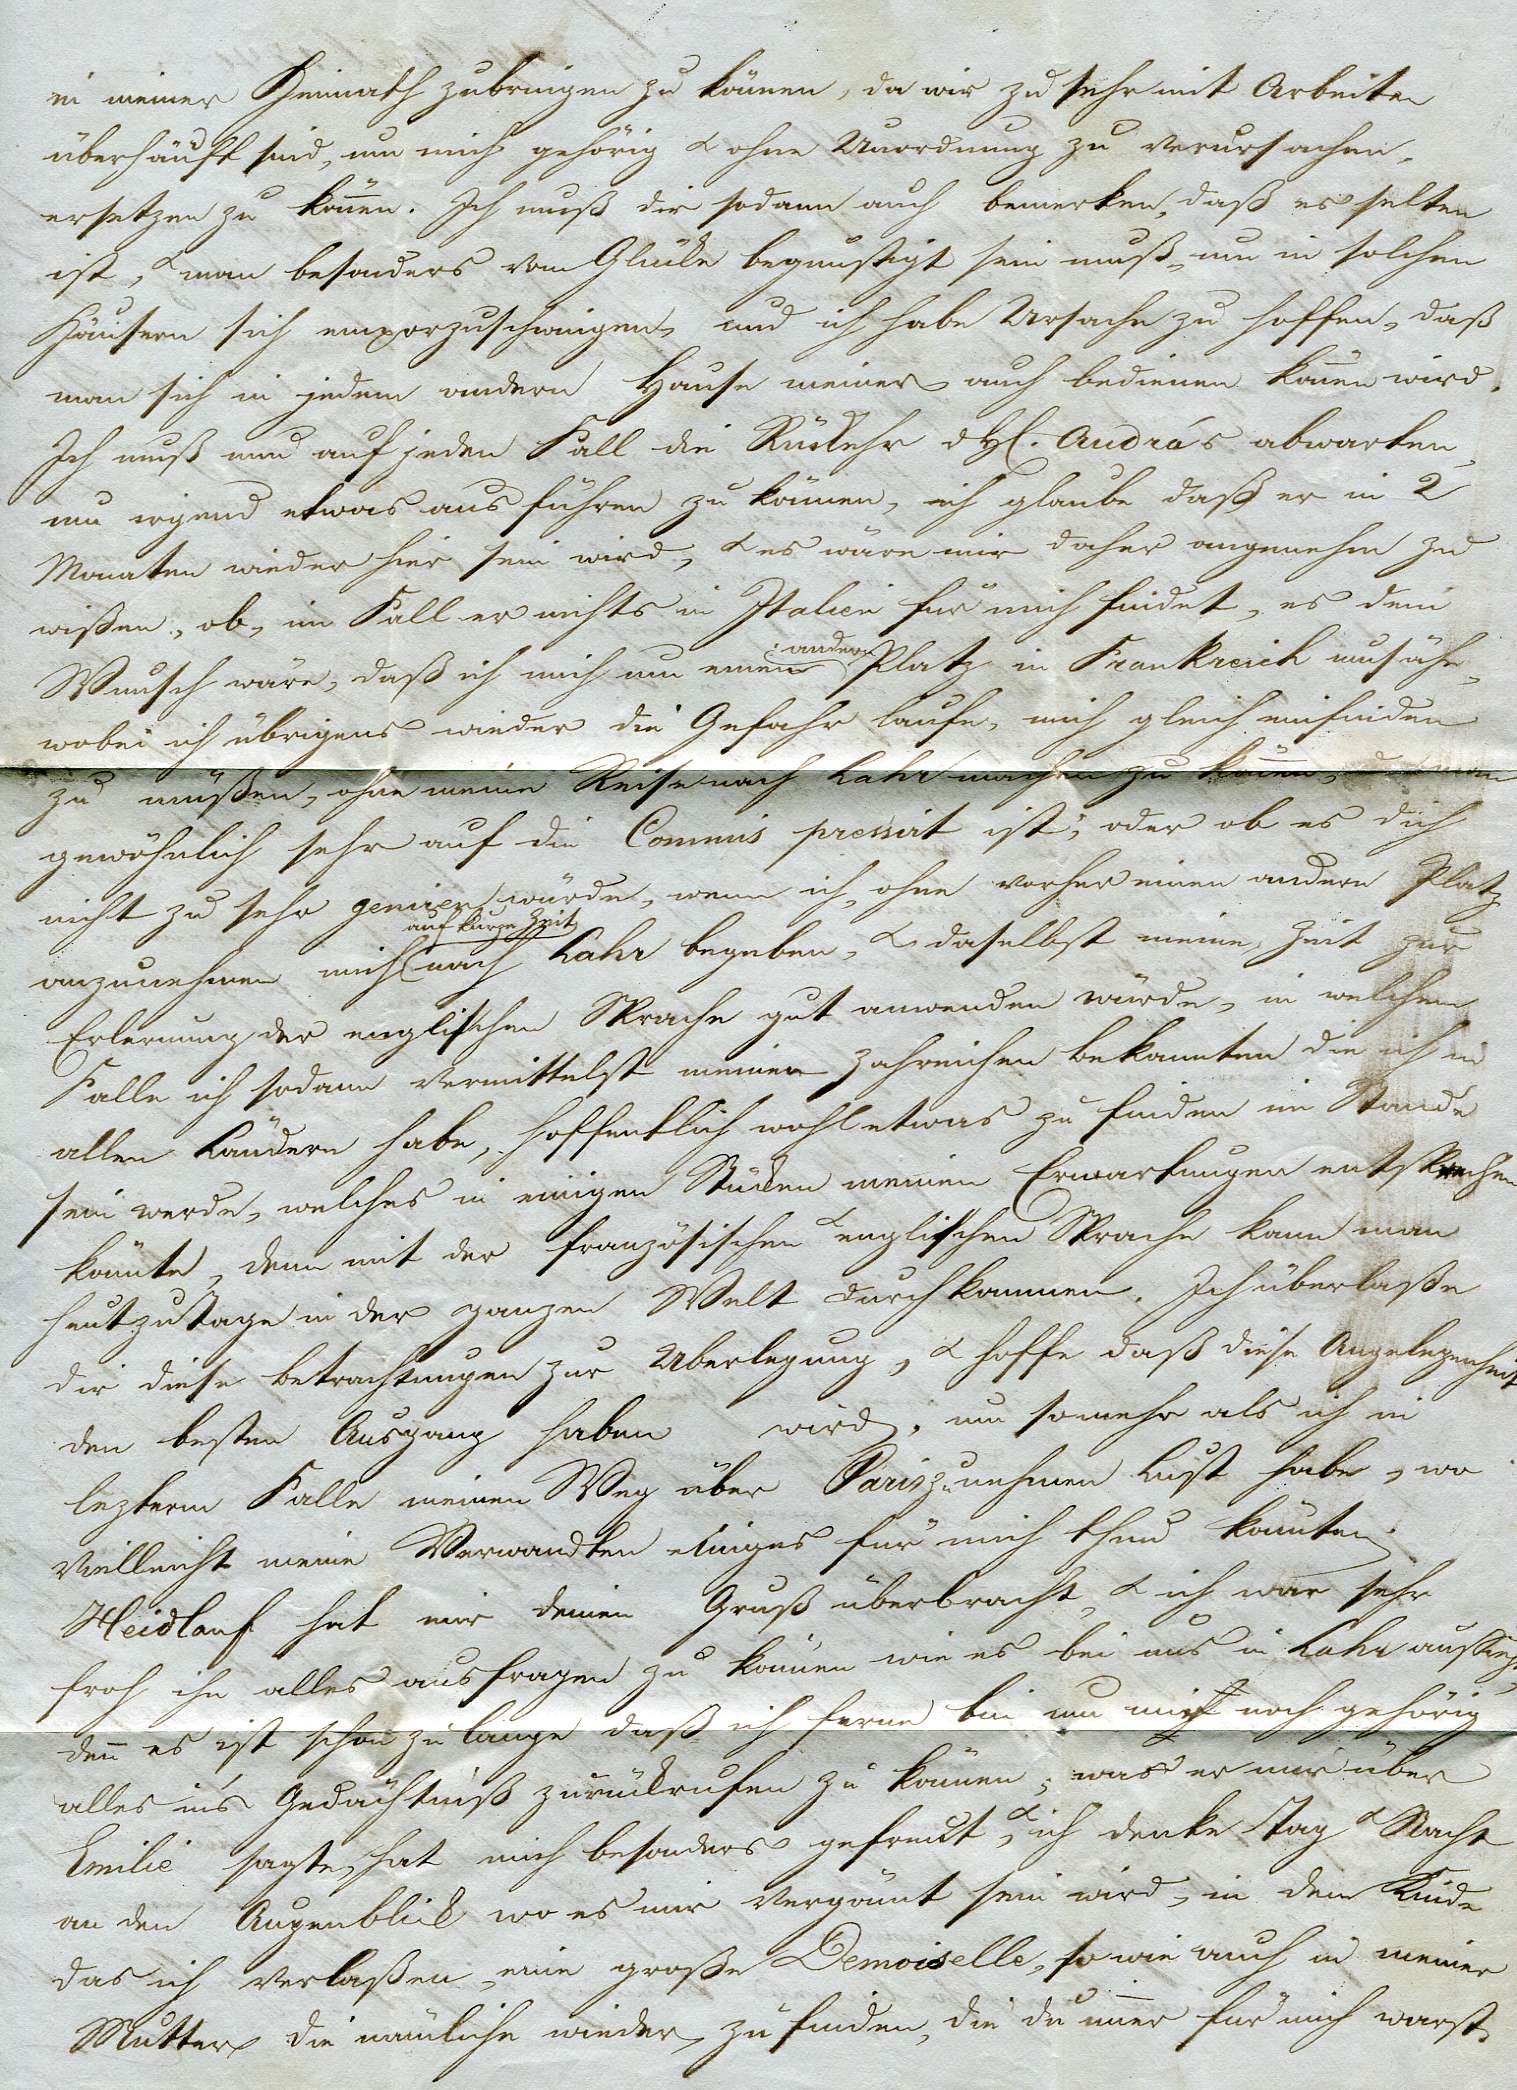 in meiner Heimath zubringen zu können, da wir zu sehr mit Arbeiten
überhäuft sind, um mich gehörig & ohne Unordnung zu verursachen,
ersetzen zu können. Ich muß dir sodann auch bemerken, daß es selten
ist, & man besonders vom Glücke begünstigt sein muß, um in solchen
Häusern sich emporzuschwingen, und ich habe Ursache zu hoffen, daß
man sich in jedem andern Hause meiner auch bedienen können wird.
Ich muß nun auf jeden Fall die Rückkehr d H. Andrá's abwarten,
um irgend etwas ausführen zu können, ich glaube daß er in 2
Monaten wieder hier sein wird, & es wäre mir daher angenehm zu
wißen, ob, im Fall er nichts in Italien für mich findet, es dein
Wunsch wäre, daß ich mich um einen andern Platz in Frankreich umsähe,
wobei ich übrigens wieder die Gefahr laufe, mich gleich einfinden
zu müßen, ohne meine Reise nach Lahr machen zu können, da man
gewöhnlich sehr auf die Commis pressirt ist; oder ob es dich
nicht zu sehr geniren würde, wenn ich, ohne vorher einen andern Platz
anzunehmen mich auf kurze Zeit nach Lahr begeben, & daselbst meine Zeit zur
Erlernung der englischen Sprache gut anwenden würde, in welchem
Falle ich sodann vermittelst meiner zahreichen bekannten die ich in
allen Ländern habe, hoffentlich wohl etwas zu finden im Stande
sein werde, welches in einigen Stücken meinen Erwartungen entsprechen
könnte, denn mit der französischen & englischen Sprache kann man
heut zu Tage in der ganzen Welt durchkommen. Ich überlaße
dir diese betrachtungen zur Uberlegung, & hoffe daß diese Angelegenheit
den besten Ausgang haben wird, um somehr als ich in
lezterm Falle meinen Weg über Paris zu nehmen Lust habe, wo
vielleicht meine Verwandten einiges für mich thun könnten.
Heidlauf hat mir deinen Gruß überbracht, & ich war sehr
froh ihn alles ausfragen zu können wie es bei uns in Lahr aussieht,
den̅ es ist schon zu lange daß ich ferne bin um mir noch gehörig
alles in's Gedächtniß zurückrufen zu können; was er mir über
Emilie sagte, hat mich besonders gefreut, & ich denke Tag & Nacht
an den Augenblick wo es mir vergönnt sein wird, in dem Kinde
das ich verlaßen, eine große Demoiselle, so wie auch in meiner
Mutter die nämliche wieder zu finden, die du im̅er für mich warst.